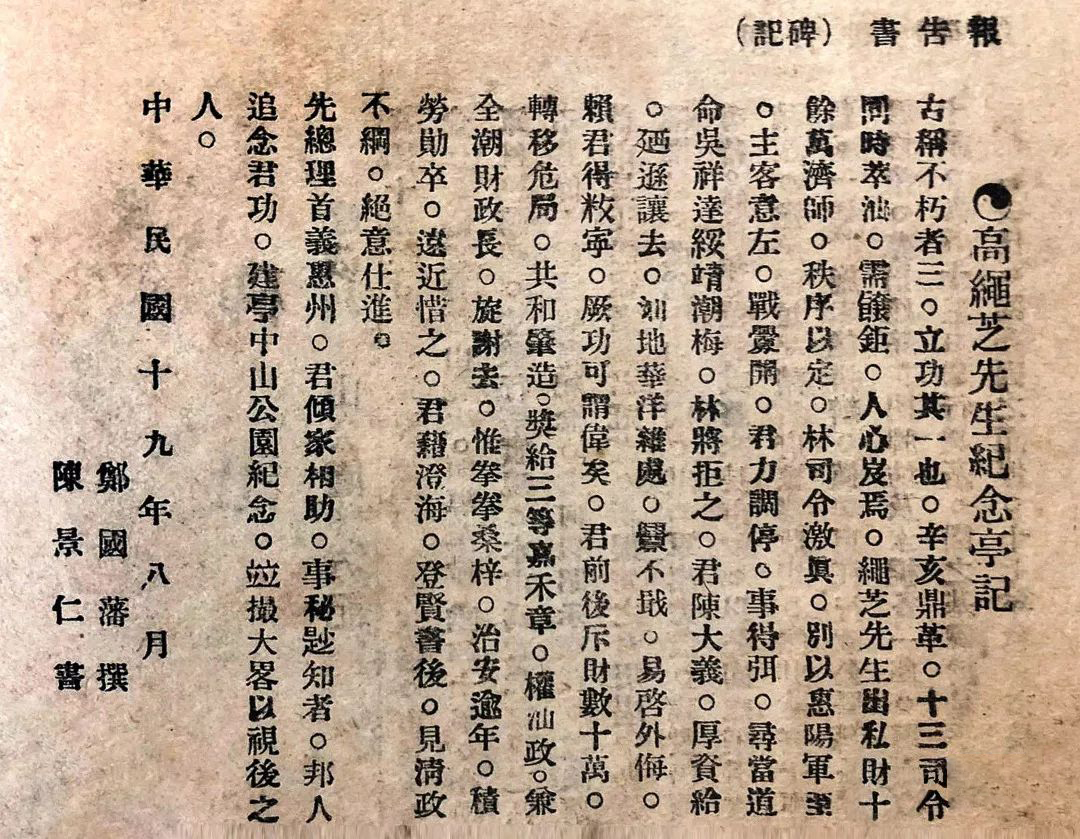 報告書（碑記）
高繩芝先生紀念亭記
古稱不朽者三。立功其一也。辛亥鼎革。十三司令
同時萃汕。需饟鉅。人心岌焉。繩芝先生出私財十
餘萬濟師。秩序以定。林司令激眞。別以惠陽軍至
。主客意左。戰釁開。君力調停。事得弭。尋當道
命吳祥達綏靖潮梅。林將拒之。君陳大義。厚資給
。廼遜讓去。汕地華洋雜處。釁不戢。易啓外侮。
賴君得敉寧。厥功可謂偉矣。君前後斥財數十萬。
轉移危局。共和肇造。獎給三等嘉禾章。權汕政。兼
全潮財政長。旋謝去。惟拳拳桑梓。治安逾年。積
勞勛卒。遠近惜之。君籍澄海。登賢書後。見清政
不綱。絕意仕進。
先總理首義惠州。君傾家相助。事秘尠知者。邦人
追念君功。建亭中山公園紀念。竝撮大畧以視後之
人。
中華民國十九年八月
鄭國藩撰
陳景仁書